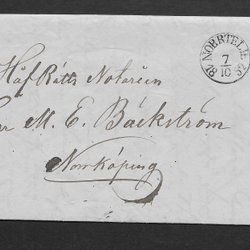 NORRTELJE
7
10
Håf Rätts Notarien
M. E. Bäckström
Norrköping